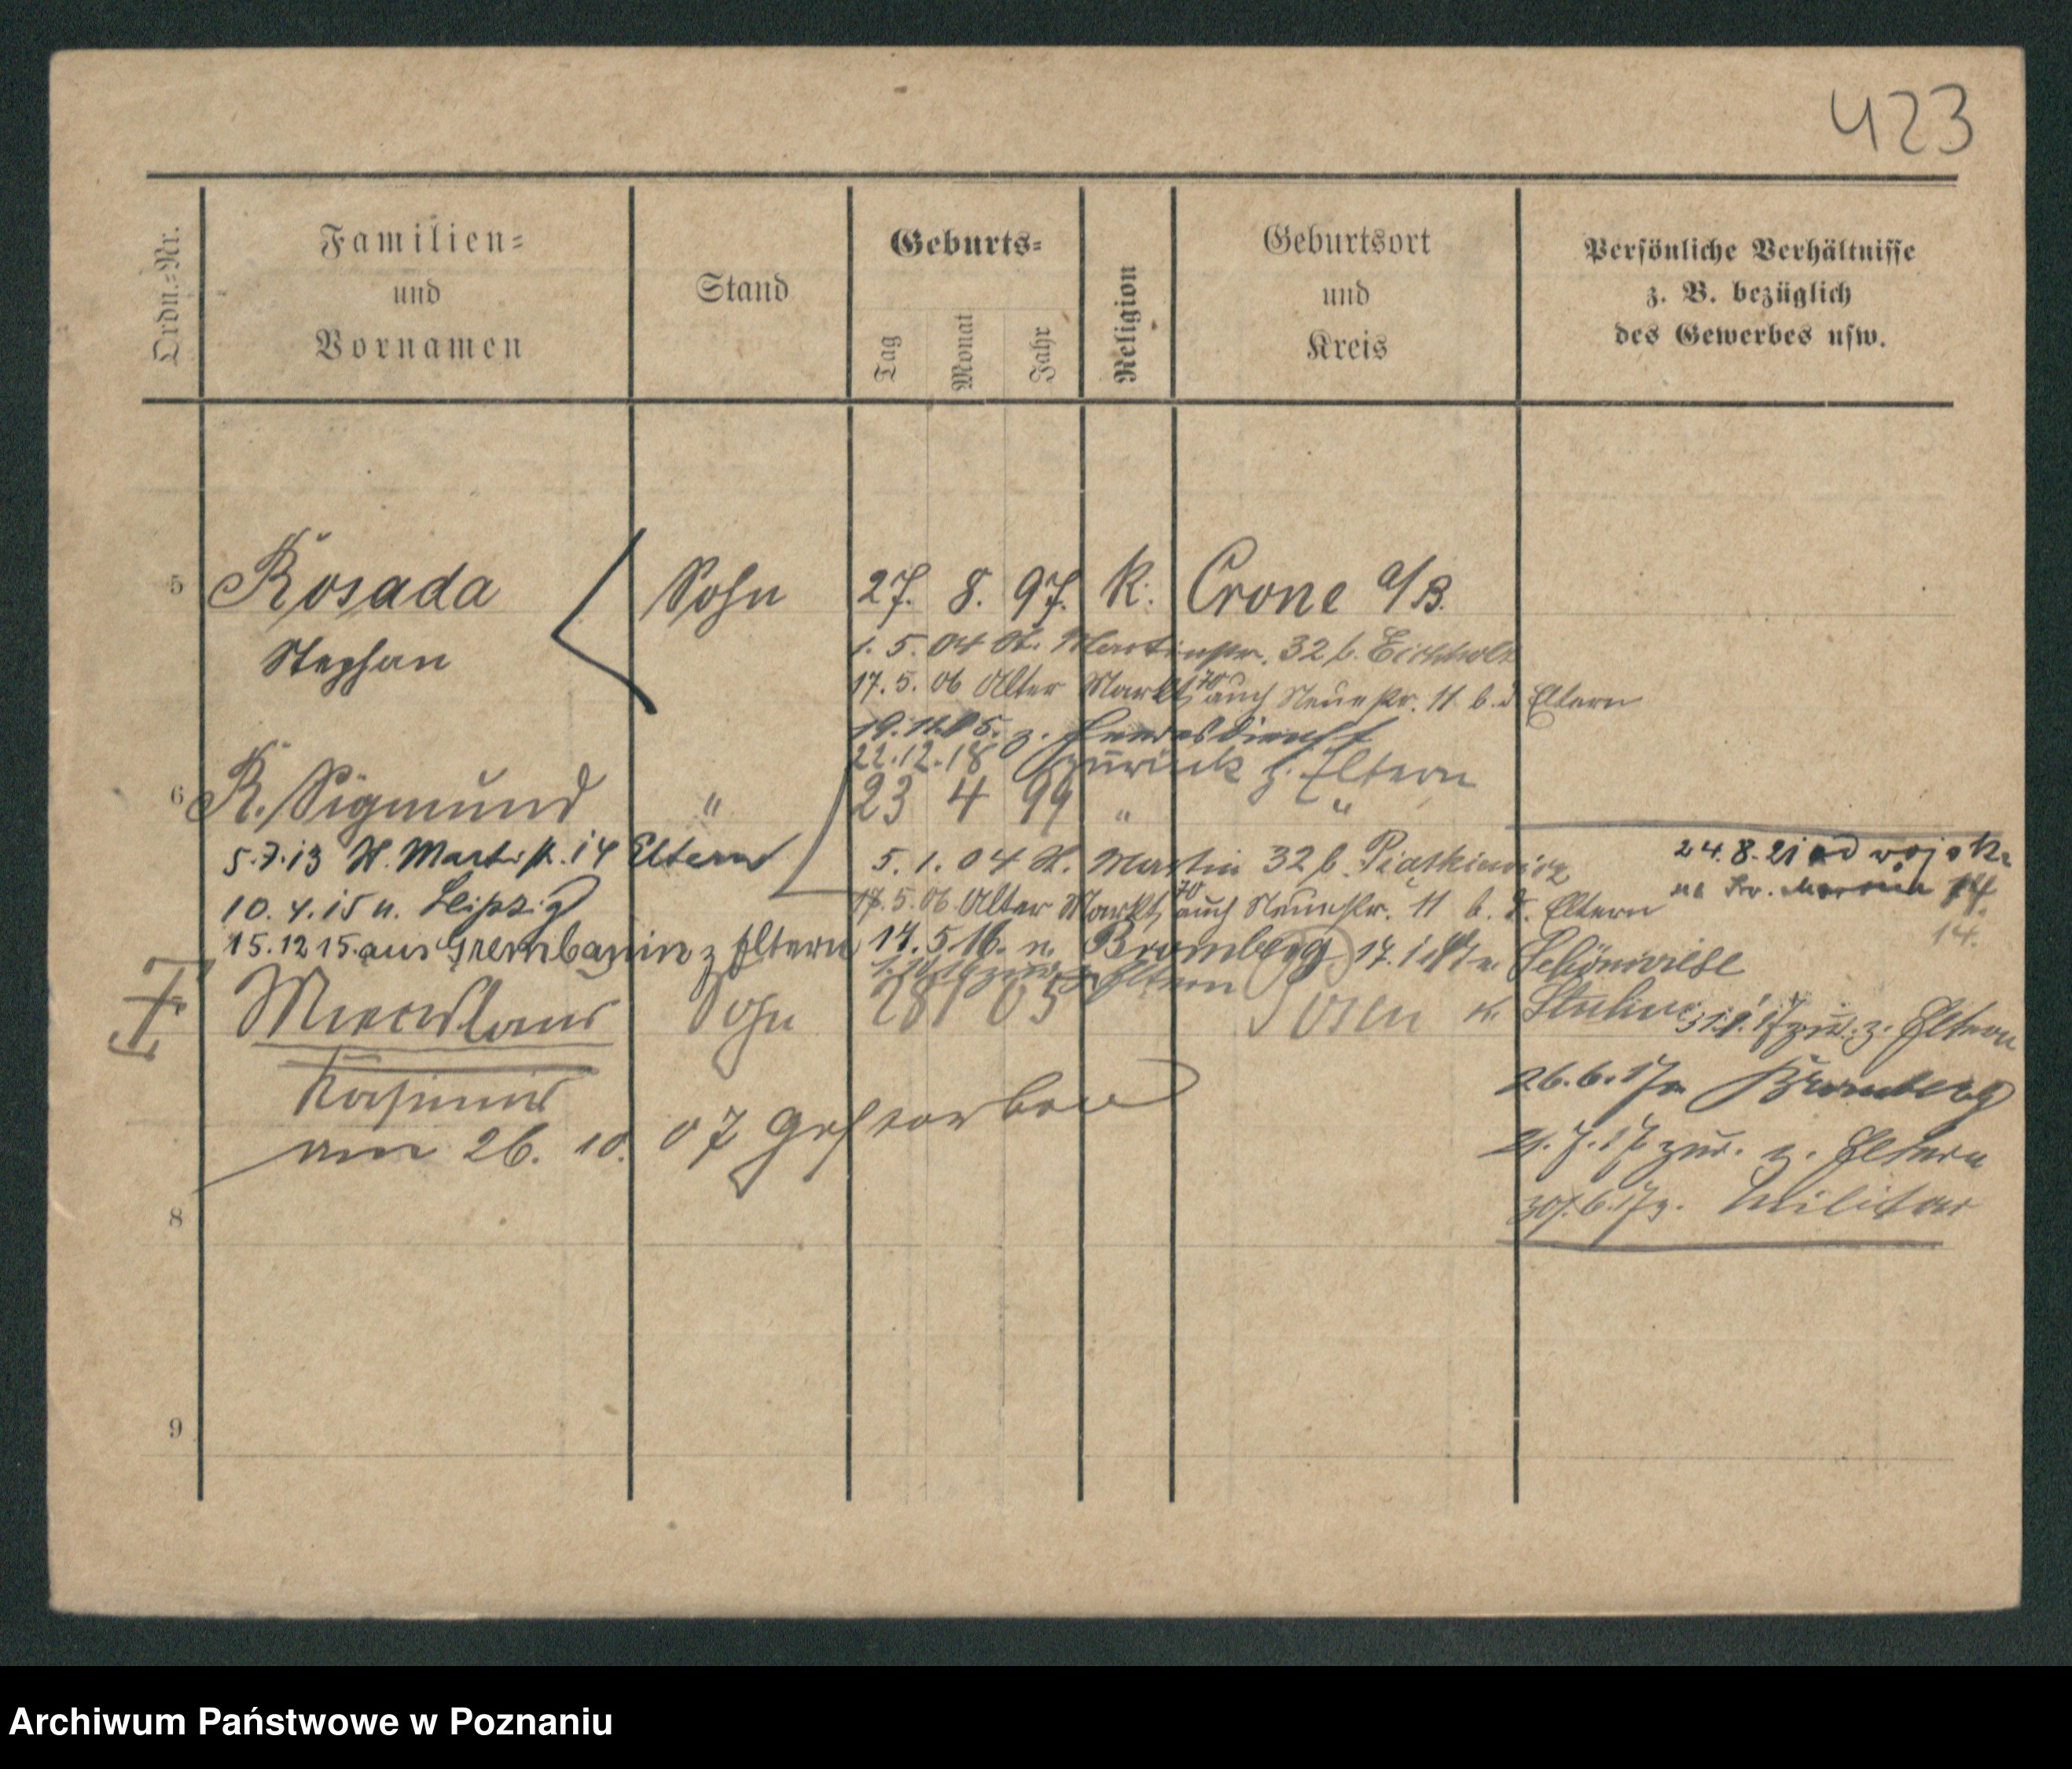 423
Ordn.=Nr.
Familien=
und
Vornamen
Stand
Geburts=
Tag
Monat
Jahr
Religion
Geburtsort
und
Kreis
Persönliche Verhältnisse
z. B. bezüglich
des Gewerbes usw.
5 Rosada Sohn 27. 8. 97. K. Crone a/B.
Stephan
1. 5. 04 St. Martinstr. 32 b. Eichholz
17. 5. 06 Alter Markt 70 auch Neuestr. 11 b. d. Eltern
z. Heeresdienst
22.12.18 zurück z. Eltern
6 R. Sigmund " 23 4 99 " "
5.7.13 St. Martinstr. 14 Eltern
5. 1. 04 St. Martin 32 b.
24.8.21 od wojska
na Św. Marcin 14
14.
10. 4. 15 n. Leipzig
17. 5. 06 Alter Markt 70 auch Neuestr. 11 b. d. Eltern
15. 12 15. aus Grembanin z Eltern
14. 5. 16. n. Bromberg 17. n. Schönwiese
zur. z. Eltern
Sohn 28 1 05 Posen
zur. z. Eltern
Kasimir
26. 6. 17 n. Bromberg
am 26. 10. 07 gestorben
7. 17 zur. z. Eltern
6. 17 z. Militär
8
9
Archiwum Państwowe w Poznaniu